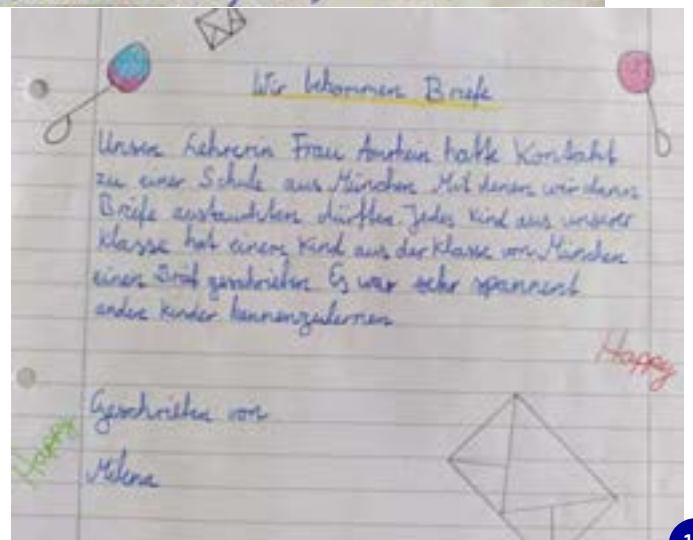 Wir bekommen Briefe
Unsere Lehrerin Frau hatte Kontakt
zu einer Schule aus München Mit denen wir dann
Briefe austauschten dürften. Jedes Kind aus unserer
Klasse hat einem Kind aus der Klasse von München
einen Brief geschrieben Es war sehr spannent
andere Kinder kennenzulernen
Happy
Geschrieben von
Happy
Milena
1